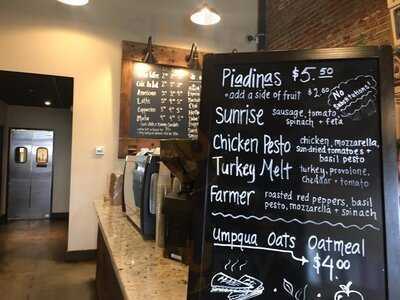 Piadinas $5.50
+add a side of fruit $2.00
No Substitutions!
Sunrise sausage, tomato, spinach + feta
Chicken Pesto chicken, mozzarella, sun-dried tomatoes + basil pesto
Turkey Melt turkey, provolone, cheddar + tomato
Farmer roasted red peppers, basil pesto, mozzarella + spinach
Umpqua Oats Oatmeal
$4.00
Latte
Mocha